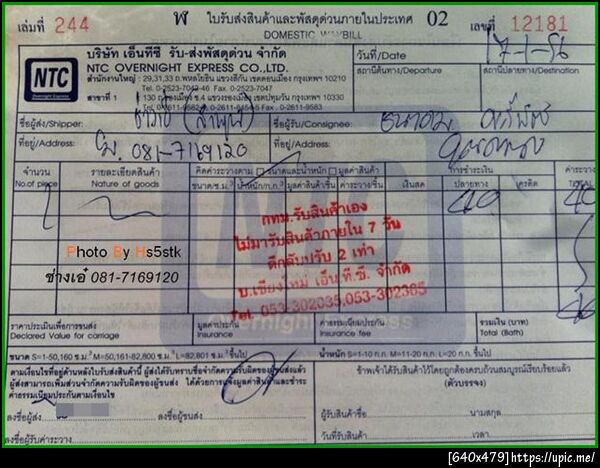 เล่มที่ 244
ฬ
ใบรับส่งสินค้าและพัสดุด่วนภายในประเทศ 02
DOMESTIC WAYBILL
เลขที่ 12181
NTC
Overnight Express
บริษัท เอ็นทีซี รับ-ส่งพัสดุด่วน จำกัด
NTC OVERNIGHT EXPRESS CO.,LTD.
สำนักงานใหญ่ : 29,31,33 ถ.พหลโยธิน แขวงสีกัน เขตดอนเมือง กรุงเทพฯ 10210
Tel. 0-2523-7042-46 Fax. 0-2523-7047
สาขาที่ 1
วันที่/Date 17-1-56
สถานีต้นทาง/Departure
สถานีปลายทาง/Destination
ชื่อผู้ส่ง/Shipper:
ชื่อผู้รับ/Consignee:
ที่อยู่/Address: 081-7169120
ที่อยู่/Address:
จำนวน
No.of piece
รายละเอียดสินค้า
Nature of goods
คิดค่าระวางตาม
ขนาดและน้ำหนัก
มูลค่าสินค้า
ขนาด/ซ.ม.³
น้ำหนัก/ก.ก.
มูลค่าสินค้าชิ้น
ค่าระวาง/ชิ้น
การชำระเงิน
เงินสด
ปลายทาง
เครดิต
ค่าระวาง
TOTAL
1
40
40
กทม.รับสินค้าเอง
ไม่มารับสินค้าภายใน 7 วัน
ตีกลับปรับ 2 เท่า
บ.เชียงใหม่ เอ็น.ที.ซี. จำกัด
Tel. 053-302035,053-302365
Photo By Hs5stk
ช่างเอ๋ 081-7169120
NTC
Overnight Express
ราคาประเมินเพื่อการขนส่ง
Declared Value for carriage
มูลค่าประกัน
Insurance
ค่าธรรมเนียมประกัน
Insurance fee
รวมเงิน (บาท)
Total (Bath)
ขนาด S=1-50,160 ซ.ม.³ M=50,161-82,800 ซ.ม.³ L=82,801 ซ.ม.³ขึ้นไป
น้ำหนัก S=1-10 ก.ก. M=11-20 ก.ก. L=20 ก.ก. ขึ้นไป
ตามเงื่อนไขที่อยู่ด้านหลังใบรับส่งสินค้านี้ ผู้ส่งได้รับทราบข้อจำกัดความรับผิดของผู้ขนส่งแล้ว
ผู้ส่งสามารถเพิ่มส่วนจำกัดความรับผิดของผู้ขนส่ง ได้ด้วยการแจ้งมูลค่าสินค้าและชำระ
ค่าธรรมเนียมประกันตามเงื่อนไข
ข้าพเจ้าได้รับสินค้าไว้โดยถูกต้องครบถ้วนสมบูรณ์เรียบร้อยแล้ว
(ตัวบรรจง)
ลงชื่อผู้ส่ง
ลงชื่อผู้ขนส่ง
ชื่อ
นามสกุล
ลงชื่อผู้รับค่าระวาง
วันที่รับสินค้า
เวลา
[640x479]https://upic.me/